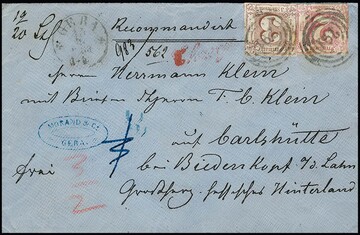 GERA
Recommandirt
983
562
Herrn Herrmann Klein
mit Briefen Ihrer T. C. Klein
auf Carlshütte
bei Biedenkopf a/d. Lahn
Grossherz. hessisches Hinterland
MORAND & Co.
GERA.
frei
3
2
3
3